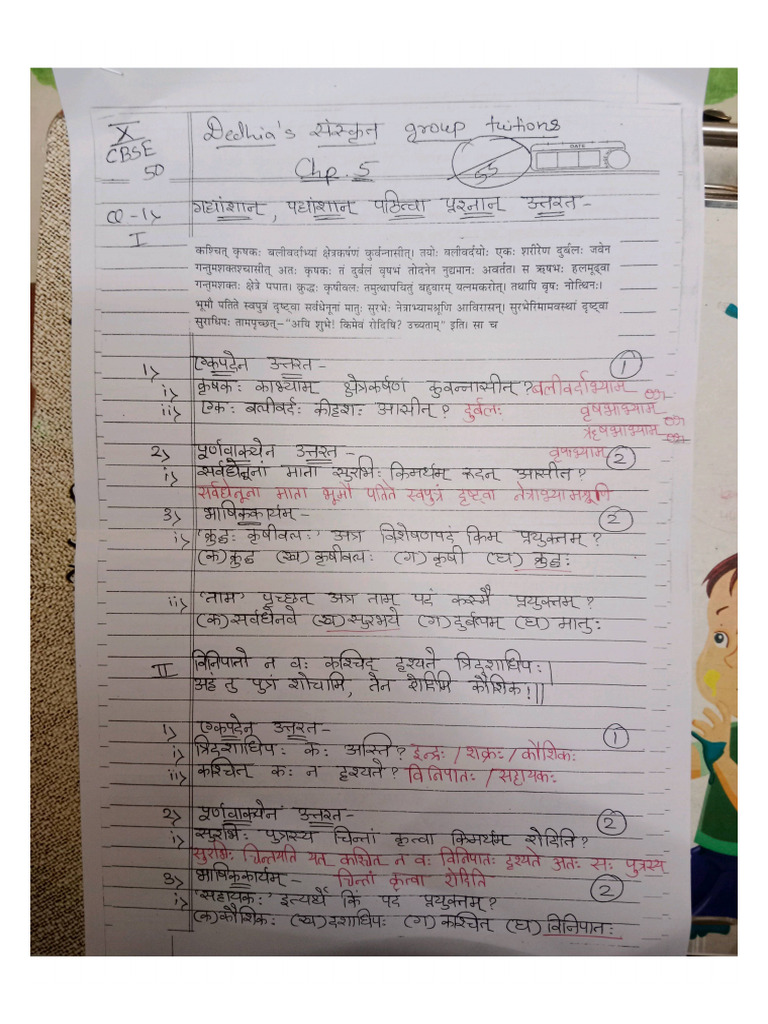 X
CBSE
50
Dedhia's संस्कृत group tuitions
Chp. 5
DATE
Q-1>
गद्यांशान्, पद्यांशान् पठित्वा प्रश्नान् उत्तरत-
I
कश्चित् कृषकः बलीवर्दाभ्यां क्षेत्रकर्षणं कुर्वन्नासीत्। तयोः बलीवर्दयोः एकः शरीरेण दुर्बलः जवेन
गन्तुमशक्तश्चासीत् अतः कृषकः तं दुर्बलं वृषभं तोदनेन नुद्यमानः अवर्तत। स ऋषभः हलमूढ्वा
गन्तुमशक्तः क्षेत्रे पपात। क्रुद्धः कृषीवलः तमुत्थापयितुं बहुवारम् यत्नमकरोत्। तथापि वृषः नोत्थितः।
भूमौ पतिते स्वपुत्रं दृष्ट्वा सर्वधेनूनां मातुः सुरभेः नेत्राभ्यामश्रूणि आविरासन्। सुरभेरिमामवस्थां दृष्ट्वा
सुराधिपः तामपृच्छत्–"अयि शुभे! किमेवं रोदिषि? उच्यताम्" इति। सा च
1> एकपदेन उत्तरत- 1
i> कृषकः काभ्याम् क्षेत्रकर्षणं कुवन्नासीत् ? बलीवर्दाभ्याम्
ii> एकः बलीवर्दः कीदृशः आसीत् ? दुर्बलः वृषभाभ्याम्
ऋषभाभ्याम्
2> पूर्णवाक्येन उत्तरत- वृषाभ्याम् 2
i> सर्वधेनूनां माता सुरभिः किमर्थम् रुदन् आसीत् ?
सर्वधेनूनां माता भूमौ पतिते स्वपुत्रं दृष्ट्वा नेत्राभ्यामश्रूणि
3> भाषिककार्यम्- 2
i> 'क्रुद्धः कृषीवलः' अत्र विशेषणपदं किम् प्रयुक्तम् ?
(क) क्रुद्ध (ख) कृषीवलः (ग) कृषी (घ) क्रुद्धः
ii> 'ताम' पृच्छत् अत्र ताम् पदं कस्मै प्रयुक्तम् ?
(क) सर्वधेनवे (ख) सुरभये (ग) दुर्वषम् (घ) मातुः
II विनिपातो न वः कश्चिद् दृश्यते त्रिदशाधिपः|
अहं तु पुत्रं शोचामि, तेन रोदिमि कौशिक!||
1> एकपदेन उत्तरत- 1
i> त्रिदशाधिपः कः अस्ति ? इन्द्रः / शक्रः / कौशिकः
ii> कश्चित् कः न दृश्यते ? विनिपातः / सहायकः
2> पूर्णवाक्येन उत्तरत- 2
i> सुरभिः पुत्रस्य चिन्तां कृत्वा किमर्थम् रोदिति ?
सुरभिः चिन्तयति यत् कश्चित् न वः विनिपातः दृश्यते अतः सः पुत्रस्य
3> भाषिककार्यम्- चिंतां कृत्वा रोदिति 2
i> 'सहायकः' इत्यर्थे किं पद प्रयुक्तम् ?
(क) कौशिकः (ख) दशाधिपः (ग) कश्चित् (घ) विनिपातः